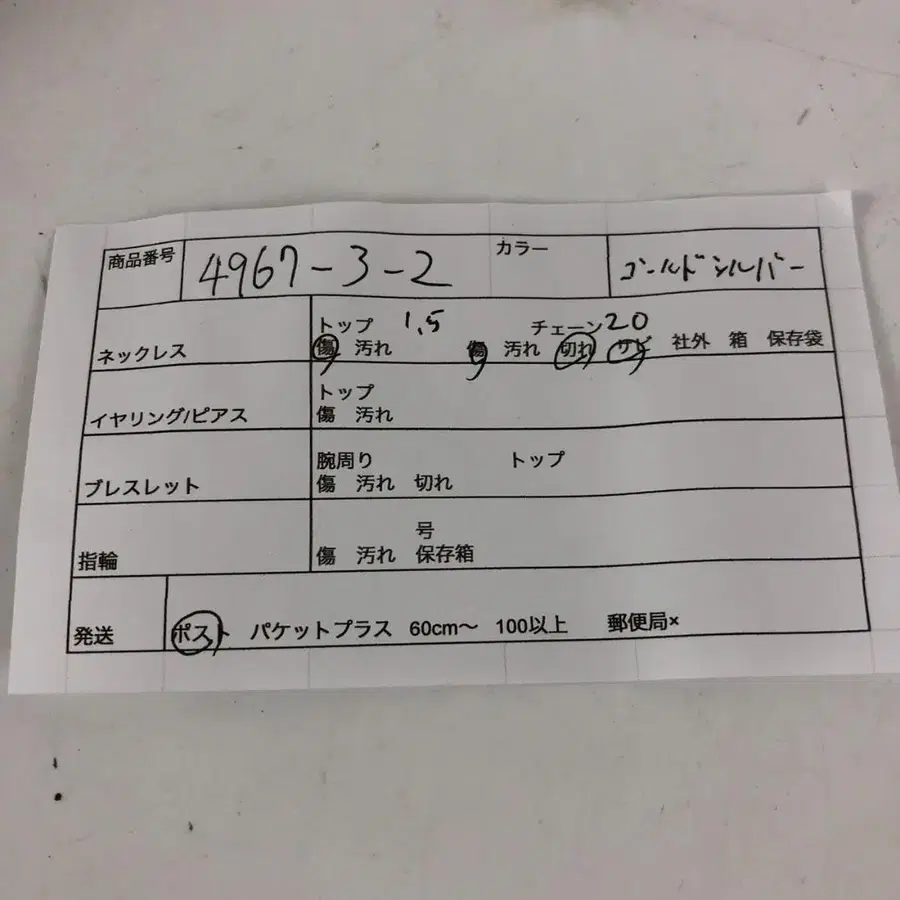 商品番号 4967-3-2 カラー ゴールドシルバー
トップ 1.5 チェーン20
ネックレス 傷 汚れ 傷 汚れ 切れ サビ 社外 箱 保存袋
トップ
イヤリング/ピアス 傷 汚れ
腕周り トップ
ブレスレット 傷 汚れ 切れ
号
指輪 傷 汚れ 保存箱
発送 ポスト パケットプラス 60cm〜 100以上 郵便局×